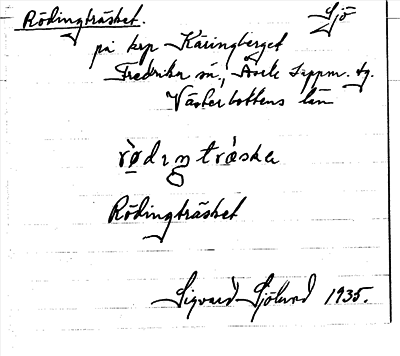 Rödingträsket. Sjö
på krp Käringberget
Fredrika sn., Åsele Lappm. tg.
Västerbottens län
rø̀dıŋtrǽska
Rödingträsket
Sigvard Sjölund 1935.